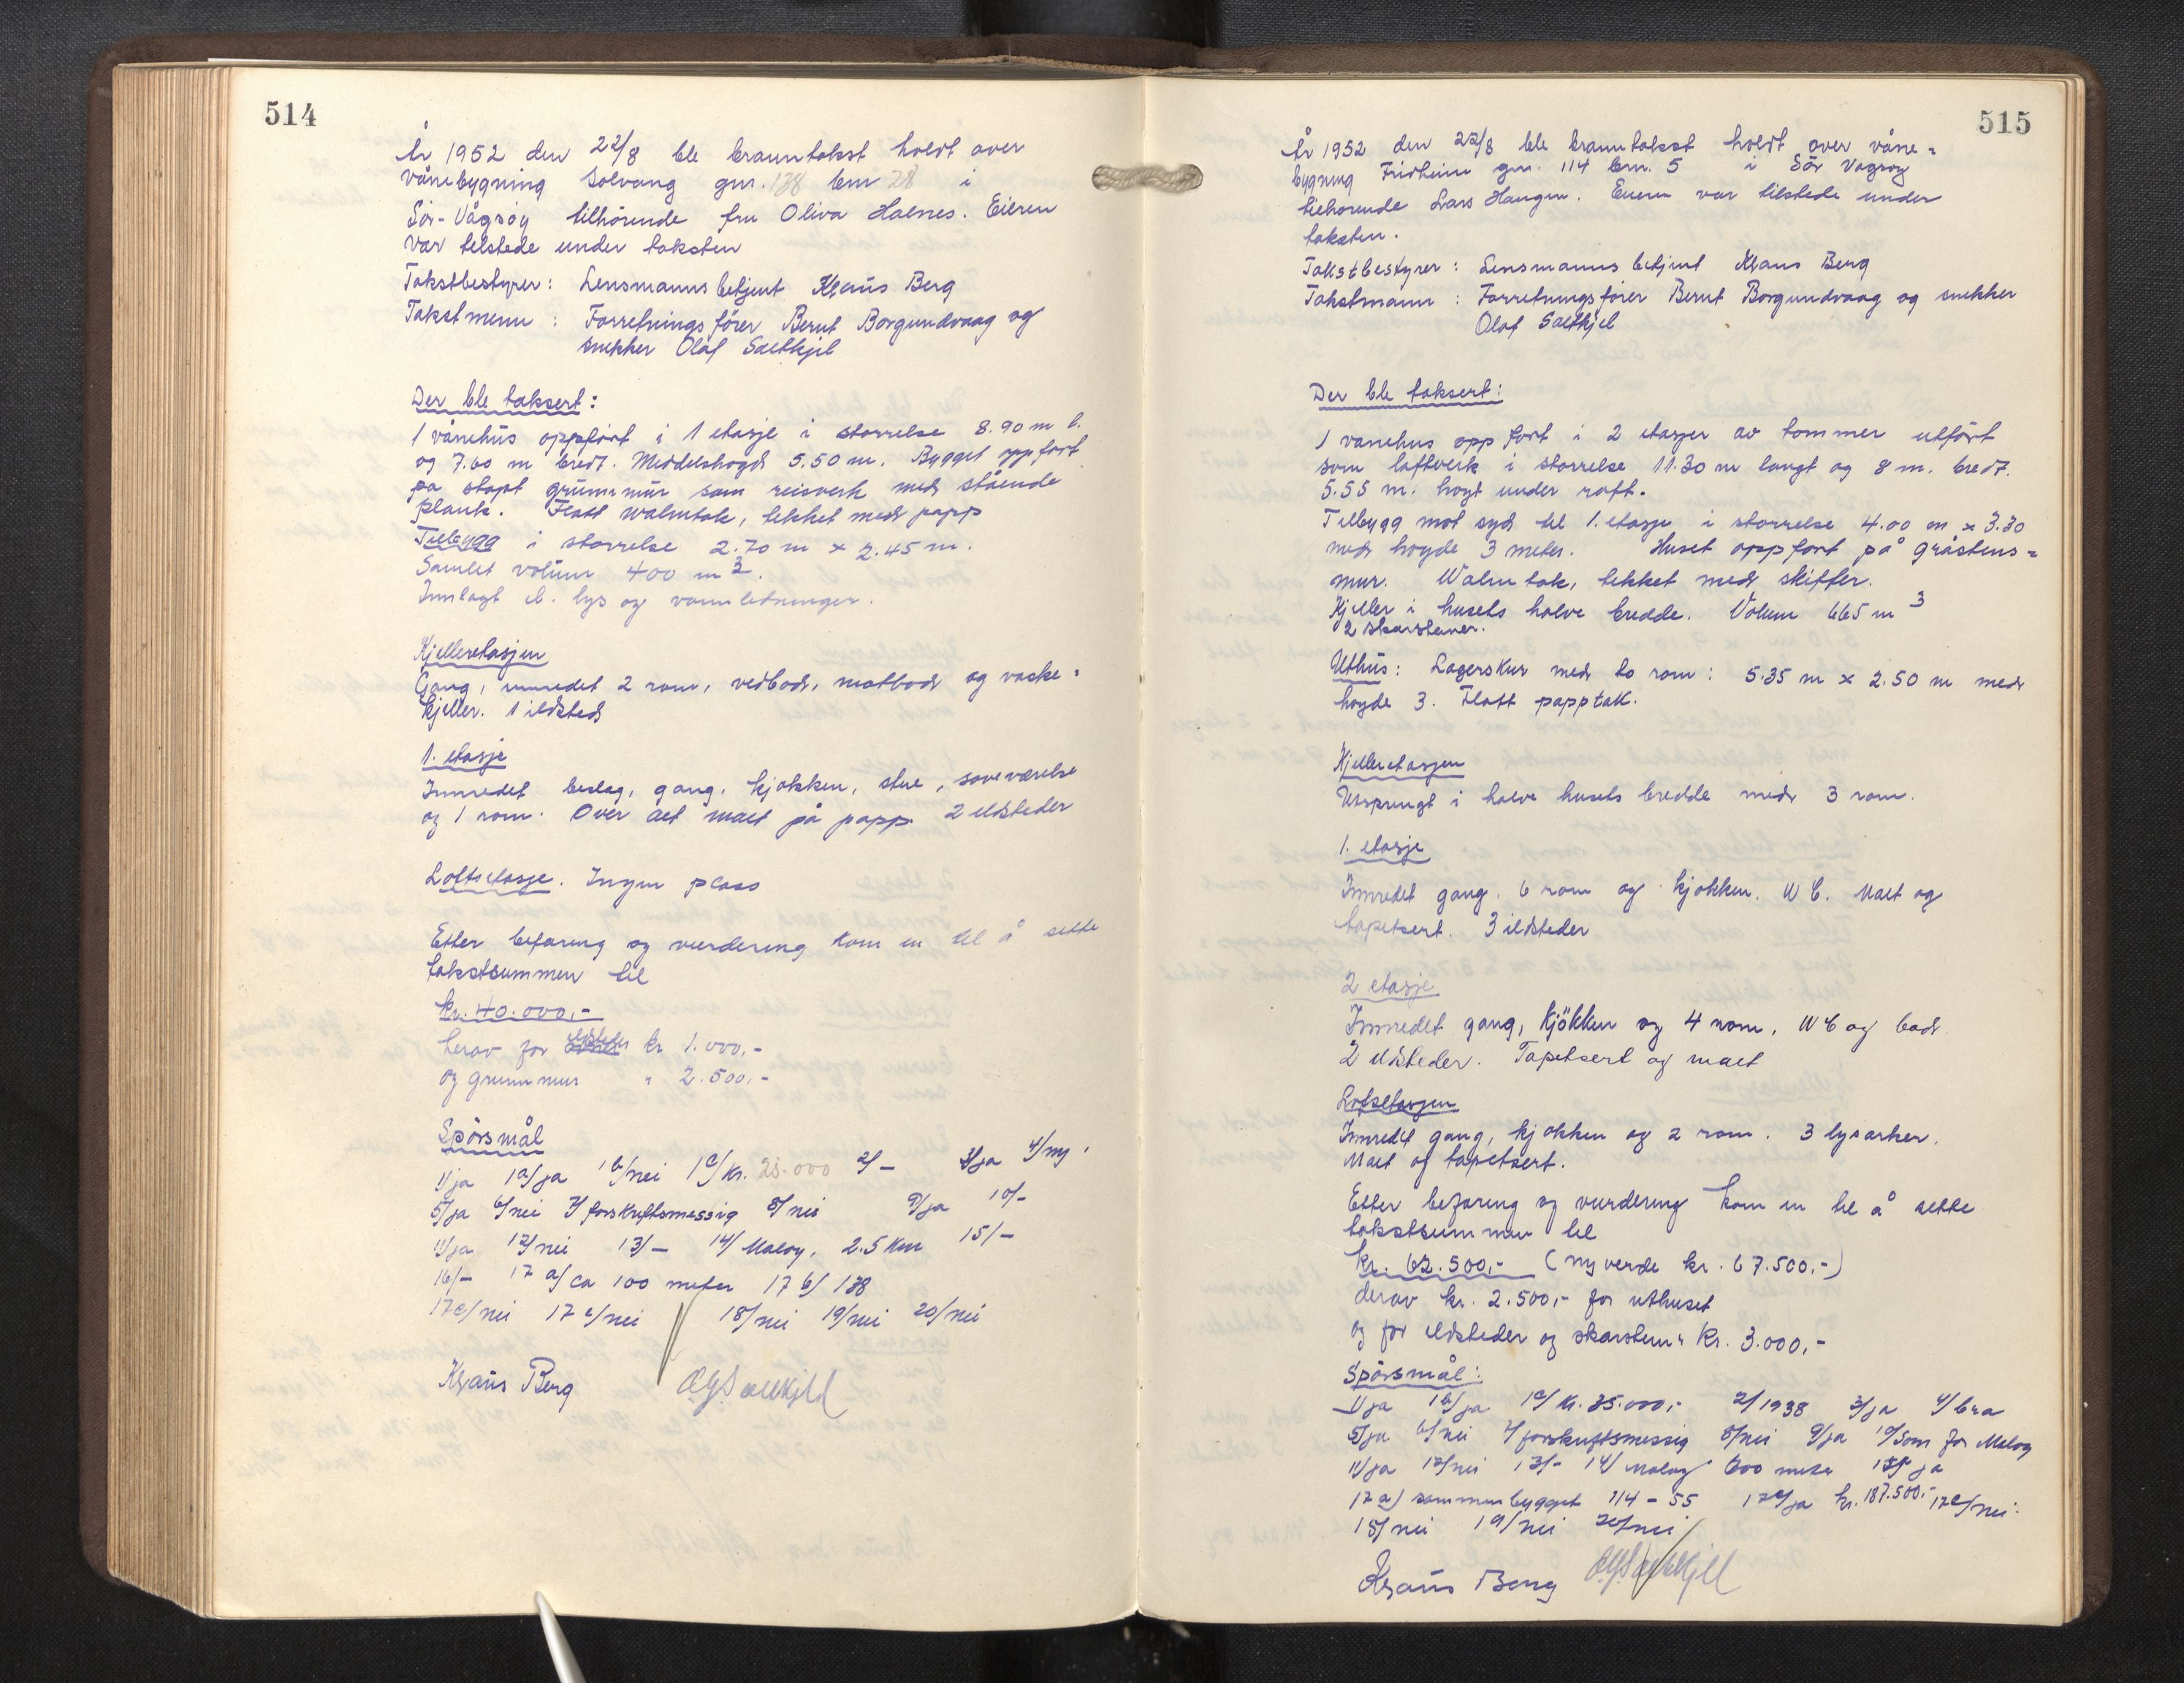 514
År 1952 den 22/8 ble branntakst holdt over
vånebygning Solvang gnr. 138 bnr 28 i
Sör-Vågsöy tilhörende fru Oliva Halnes. Eieren
var tilstede under taksten
Takstbestyrer: Lensmannsbetjent Klaus Berg
Takstmenn: Forretningsförer Bernt Borgundvaag og
snekker Olaf Sætkjel
Der ble taksert:
1 vånehus oppfört i 1 etasje i storrelse 8.90 m l.
og 7.60 m bredt. Middelshogd 5.50 m. Bygget oppfort
på stopt grunnmur som reisverk med stående
plank. Flatt walmtak, tekket med papp
Tilbygg i storrelse 2.70 m x 2.45 m.
Samlet volum 400 m3.
Innlagt el. lys og vannledninger.
Kjelleretasjen
Gang, innredet 2 rom, vedbod, matbod og vaske=
kjeller. 1 ildsted
1. etasje
Innredet beslag, gang, kjokken, stue, soveværelse
og 1 rom. Over alt malt på papp. 2 ildsteder
Loftsetasje. Ingen plass
Etter befaring og vurdering kom en til å sette
takstsummen til
kr. 40.000,-
herav for ildsteder kr 1.000,-
og grunnmur " 2.500,-
Spörsmål
1/ja 1a/ja 1b/nei 1c/kr. 25.000 2/- 3/ja 4/ny.
5/ja 6/nei 7/forskriftsmessig 8/nei 9/ja 10/-
11/ja 12/nei 13/- 14/Maloy, 2.5 km 15/-
16/- 17 a/ca 100 meter 17 b/ 138
17c/nei 17 e/nei 18/nei 19/nei 20/nei
Klaus Berg O G Sætkjel
515
År 1952 den 22/8 ble branntakst holdt over våne=
bygning Fridheim gnr. 114 bnr. 5 i Sör Vagsoy
tilhorende Lars Haugen. Eieren var tilstede under
taksten.
Takstbestyrer: Lensmannsbetjent Klaus Berg
Takstmann: Forretningsförer Bernt Borgundvaag og snekker
Olaf Sætkjel
Der ble taksert:
1 vanehus oppfort i 2 etasjer av tommer utfört
som laftverk i storrelse 11.30 m langt og 8 m. bredt.
5.55 m. hogt under raft.
Tilbygg mot syd til 1. etasje i storrelse 4.00 m x 3.30
med hoyde 3 meter. Huset oppfort på gråstens=
mur. Walm tak, tekket med skiffer.
Kjeller i husets halve bredde. Volum 665 m3
2 skorstener.
Uthus: Lagerskur med to rom: 5.35 m x 2.50 m med
hoyde 3. Flatt papptak.
Kjelleretasjen
Utsprengt i halve husets bredde med 3 rom.
1. etasje
Innredet gang, 6 rom og kjokken. WC. Malt og
tapetsert. 3 ildsteder
2 etasje
Innredet gang, kjökken og 4 rom, WC og bad
2 ildsteder. Tapetsert og malt
Loftsetasjen
Innredet gang, kjokken og 2 rom. 3 lysarker.
Malt og tapetsert.
Etter befaring og vurdering kom en til å sette
takstsummen til
kr. 62.500,- (ny verde kr. 67.500,-)
derav kr. 2.500,- for uthuset
og for ildsteder og skorstein " kr. 3.000,-
Spörsmål:
1/ja 1b/ja 1c/ kr. 35.000,- 2/1938 3/ja 4/bra
5/ja 6/nei 7/forskriftsmessig 8/nei 9/ja 10/som for Maloy
11/ja 12/nei 13/- 14/ Maloy 600 meter 15/ja
17 a) sammenbygget 114-55 17c/ja kr. 187.500,- 17e/nei.
18/nei 19/nei 20/nei
Klaus Berg O G Sætkjel